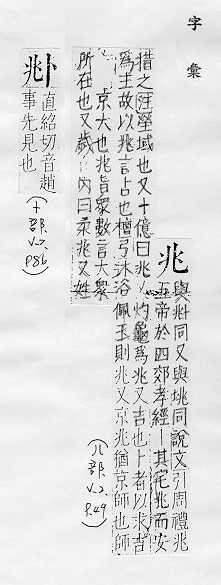 字彙
兆
與𠧞同又與垗同說文引周禮兆
五帝於四郊孝經—其宅兆而安
措之註塋域也又十億曰兆又灼龜爲兆又吉也卜者以求吉
爲主故以兆言占也檀弓沐浴佩玉則兆又京兆猶京師也師
京大也兆皆衆數言大衆
所在也又歲曰柔兆又姓
(儿部 V.2 P.49)
𠧞
直紹切音趙
事先見也
(卜部 V.2 P86)